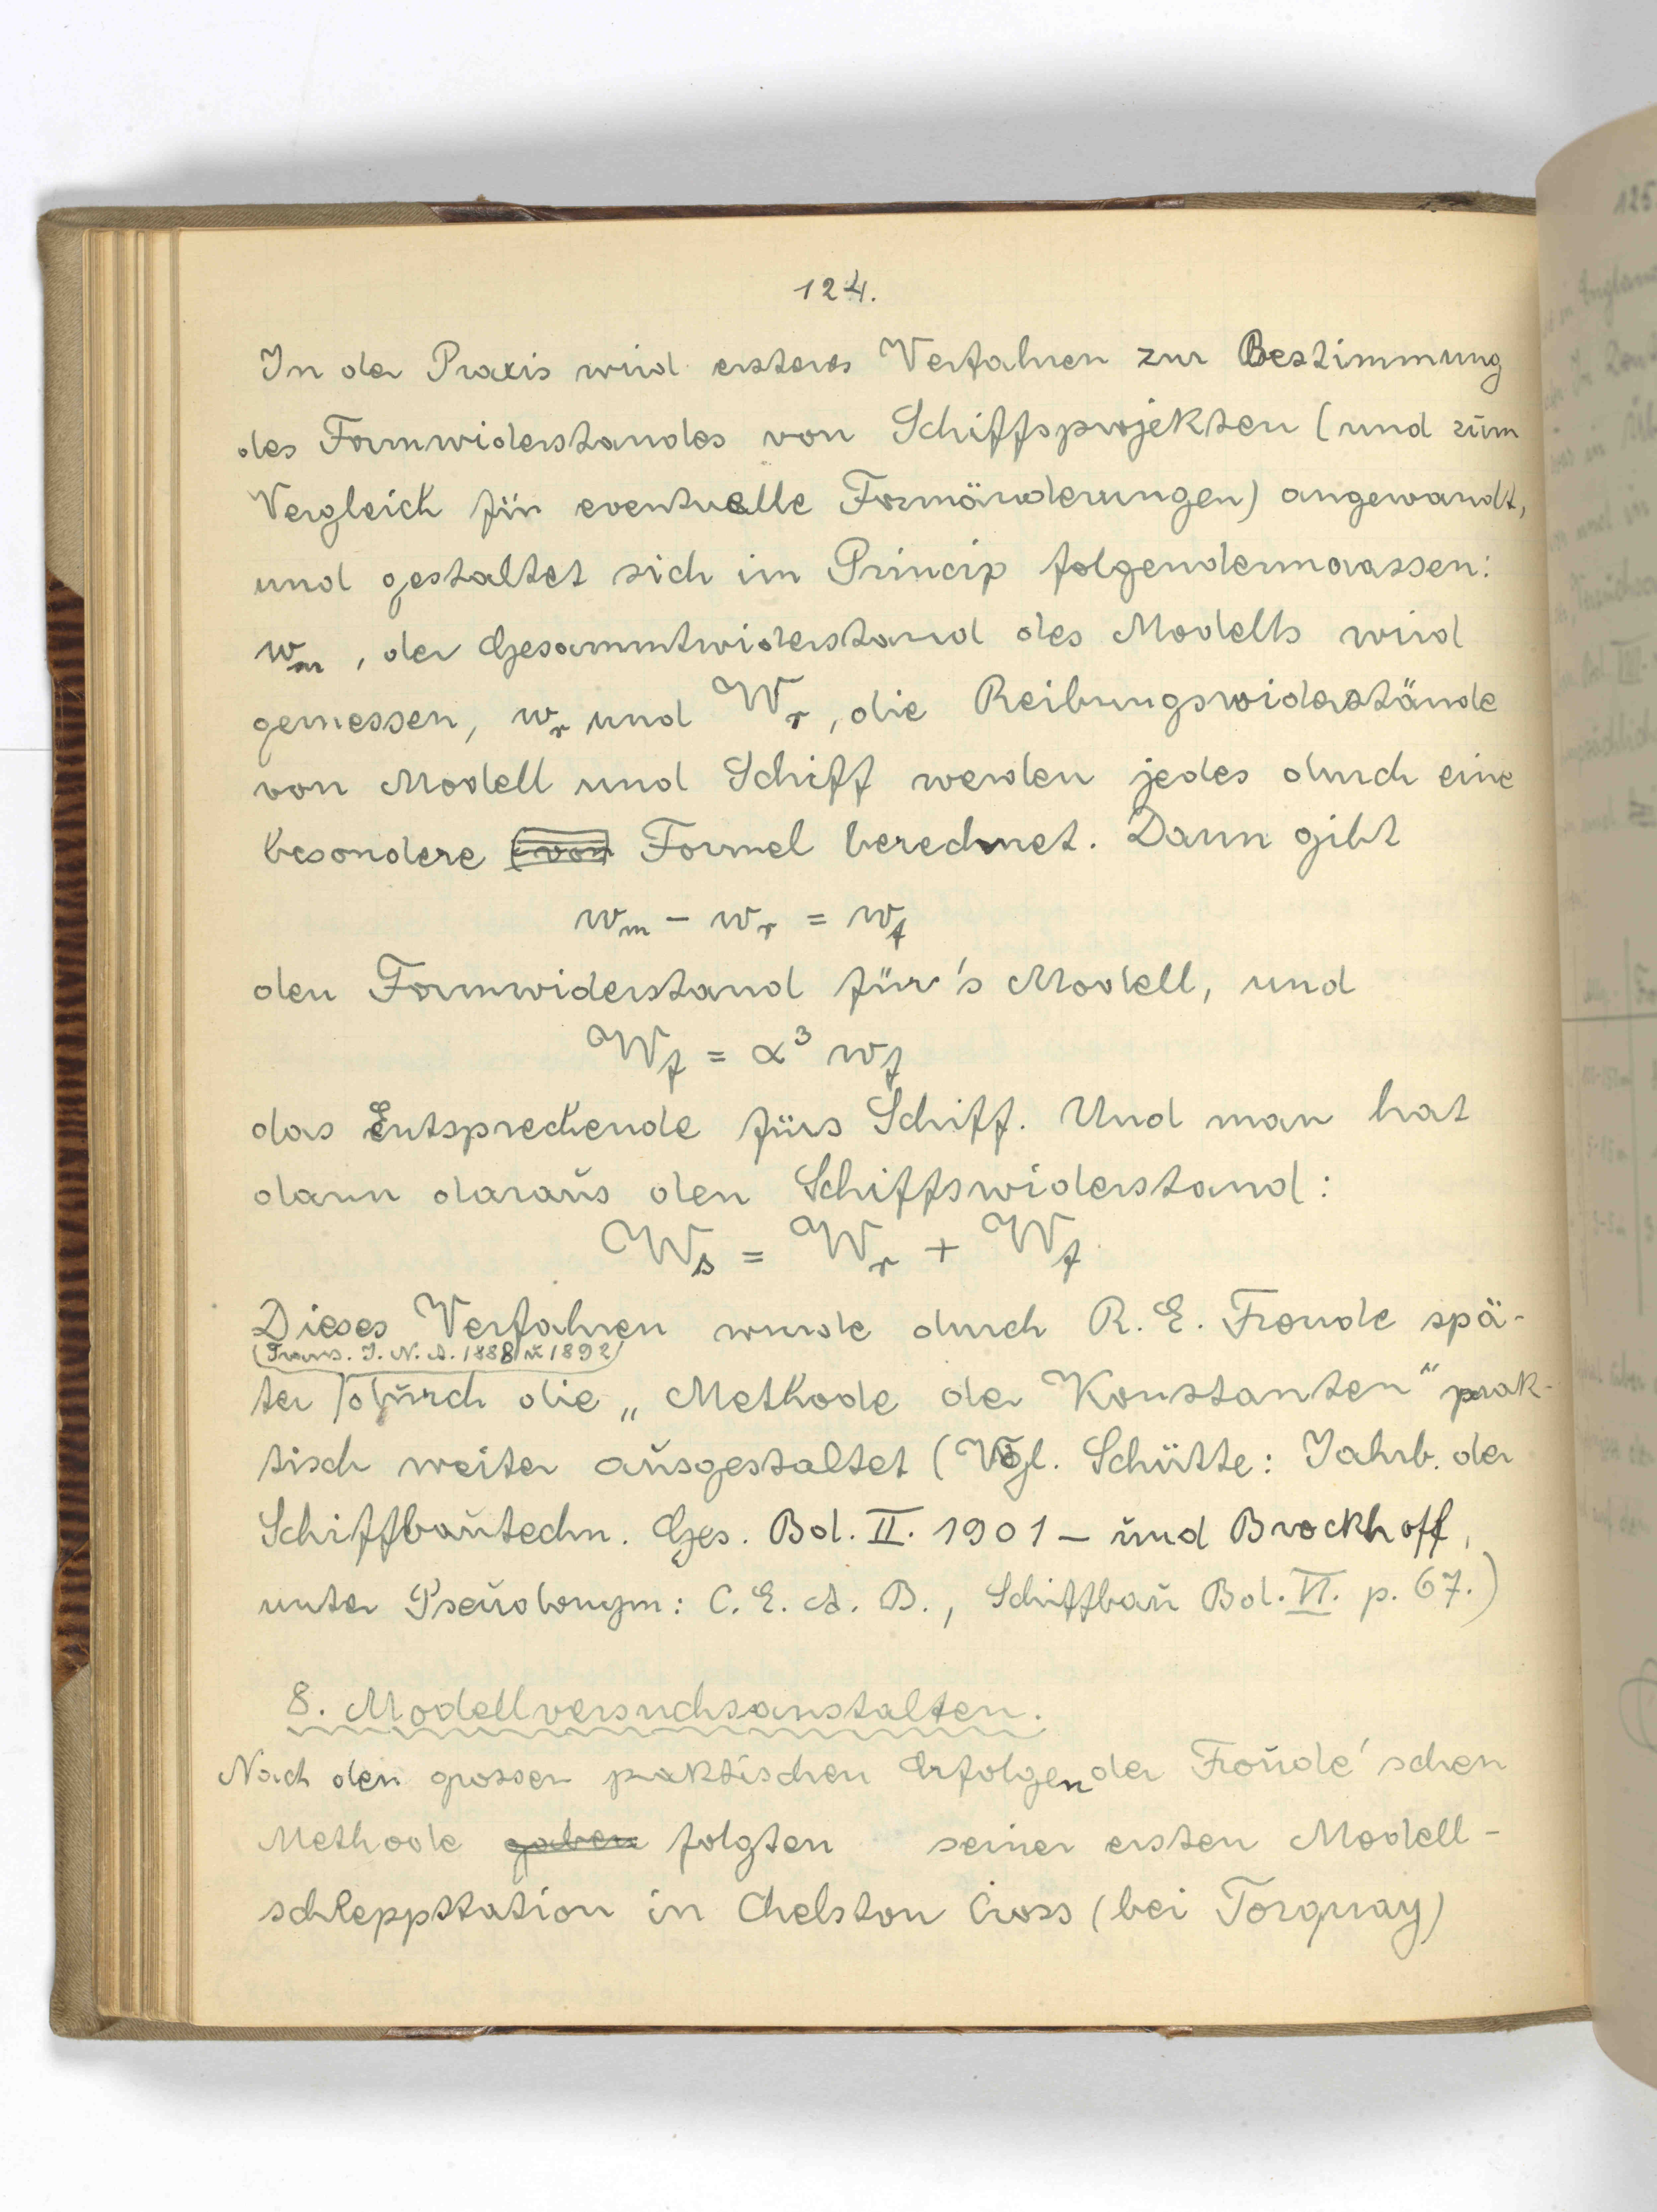 124.
In der Praxis wird ersteres Verfahren zur Bestimmung
des Formwiderstandes von Schiffsprojekten (und zum
Vergleich für eventuelle Formänderungen) angewandt,
und gestaltet sich im Princip folgendermaassen:
w_m, der Gesammtwiderstand des Modells wird
gemessen, w_r und W_r, die Reibungswiderstände
von Modell und Schiff werden jedes durch eine
besondere (von Formel berechnet. Dann gibt
w_m - w_r = w_f
den Formwiderstand für's Modell, und
W_f = α³ w_f
das Entsprechende fürs Schiff. Und man hat
dann daraus den Schiffswiderstand:
W_s = W_r + W_f
Dieses Verfahren wurde durch R. E. Froude spä-
(Trans. I. N. A. 1888 u 1892)
ter durch die „Methode der Konstanten“ prak-
tisch weiter ausgestaltet (Vgl. Schütte: Jahrb. der
Schiffbautechn. Ges. Bd. II. 1901 – und Brockhoff,
unter Pseudonym: C. E. A. B., Schiffbau Bd. VI. p. 67.)
8. Modellversuchsanstalten.
Nach den grossen praktischen Erfolgen der Froude'schen
Methode gaben folgten seiner ersten Modell-
schleppstation in Chelston Cross (bei Torquay)